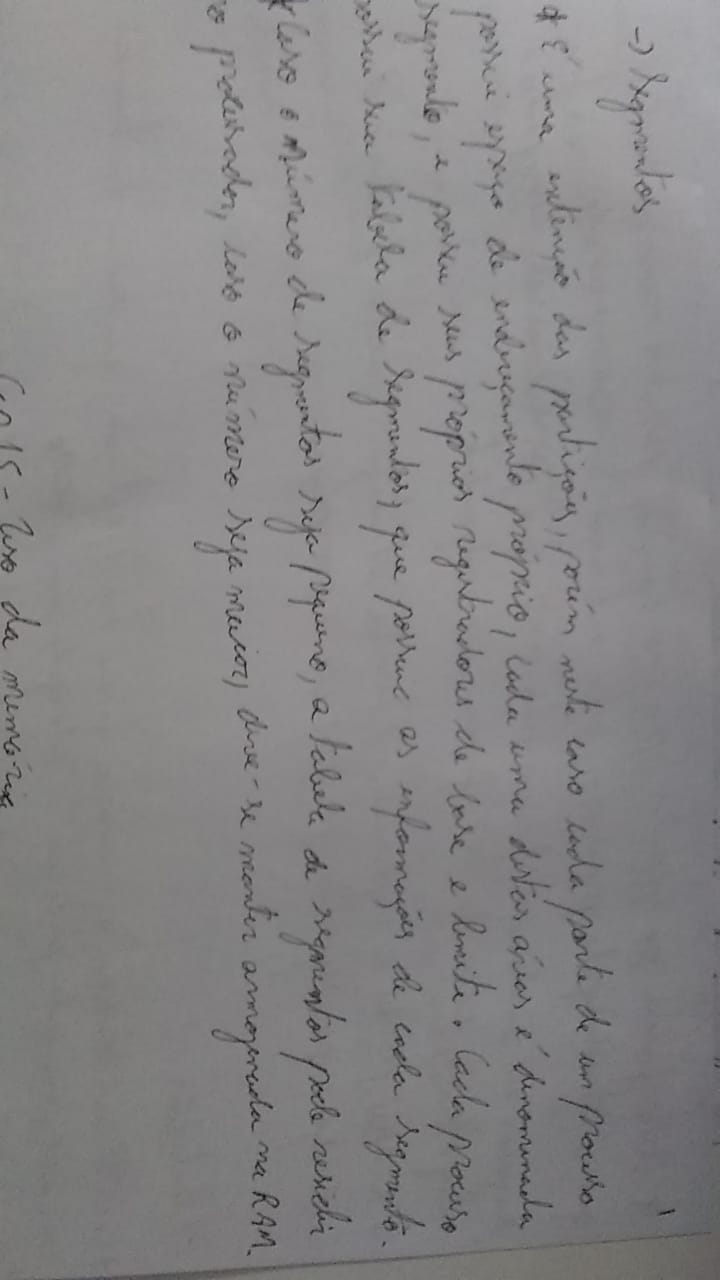 → Segmentos
* É uma extenção das partições, porém neste caso cada parte de um processo
possui espaço de endereçamento próprio, cada uma destas áreas é denominada
segmento, e possui seus próprios registradores de base e limite. Cada processo
possui sua tabela de segmentos, que possui as informações de cada segmento.
* Caso o número de segmentos seja pequeno, a tabela de segmentos pode residir
no processador, caso o número seja maior, deve-se manter armazenada na RAM.
- Uso da memória